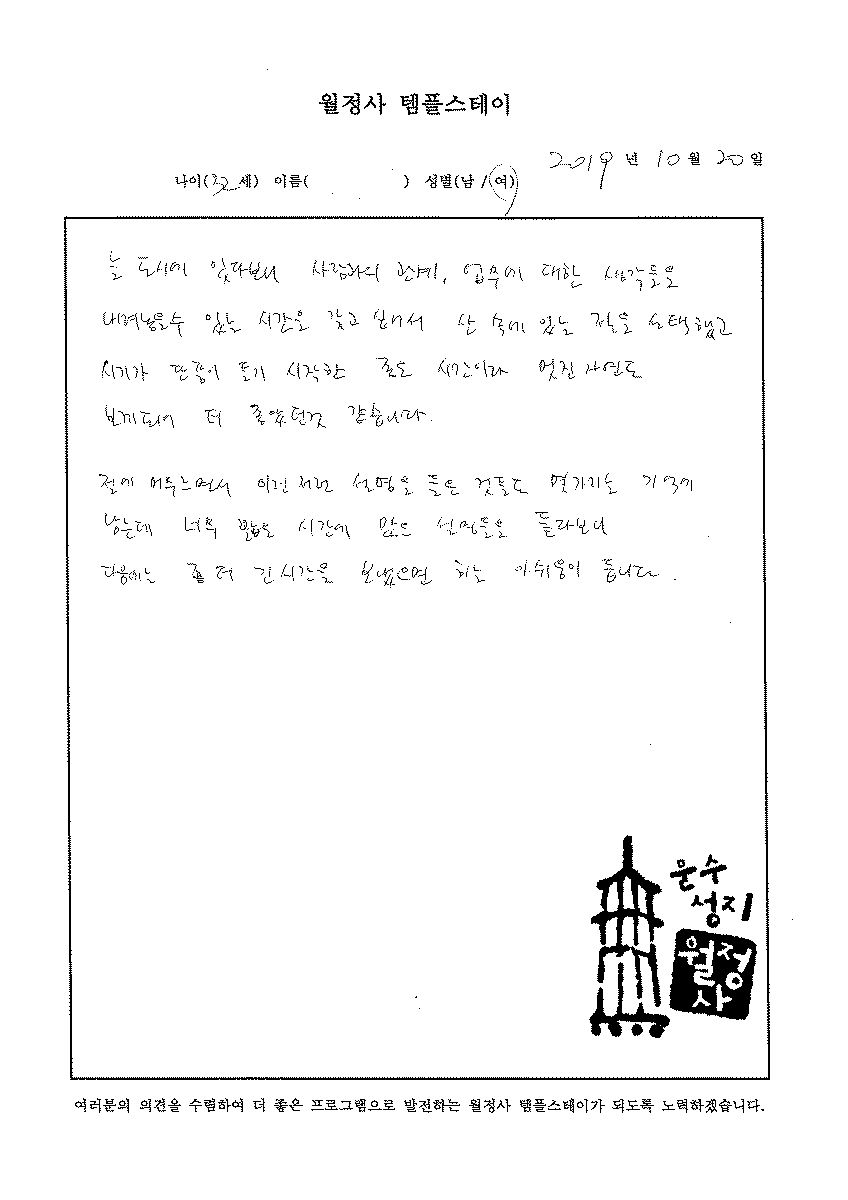 월정사 템플스테이
2019 년 10 월 20 일
나이( 세) 이름( ) 성별(남 /여)
늘 도시에 있다보니 사람과의 관계, 업무에 대한 생각들을
내려놓을수 있는 시간을 갖고 싶어서 산 속에 있는 절을 선택했고
시기가 단풍이 들기 시작한 좋은 시간이라 멋진 자연도
보게되어 더 좋았던것 같습니다.
절에 머무느면서 이런 저런 설명을 들은 것들도 몇가지는 기억에
남는데 너무 짧은 시간에 많은 설명들을 들라보니
다음에는 좀 더 긴 시간을 보냈으면 하는 아쉬움이 듭니다.
운수
성지
월정
사
여러분의 의견을 수렴하여 더 좋은 프로그램으로 발전하는 월정사 템플스테이가 되도록 노력하겠습니다.